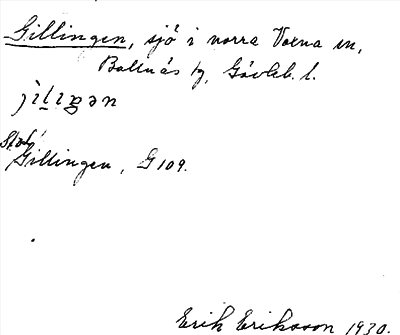 Gillingen, sjö i norra Voxna sn,
Bollnäs tg, Gävleb. l.
Gillingen, G 109.
Erik Eriksson 1930.